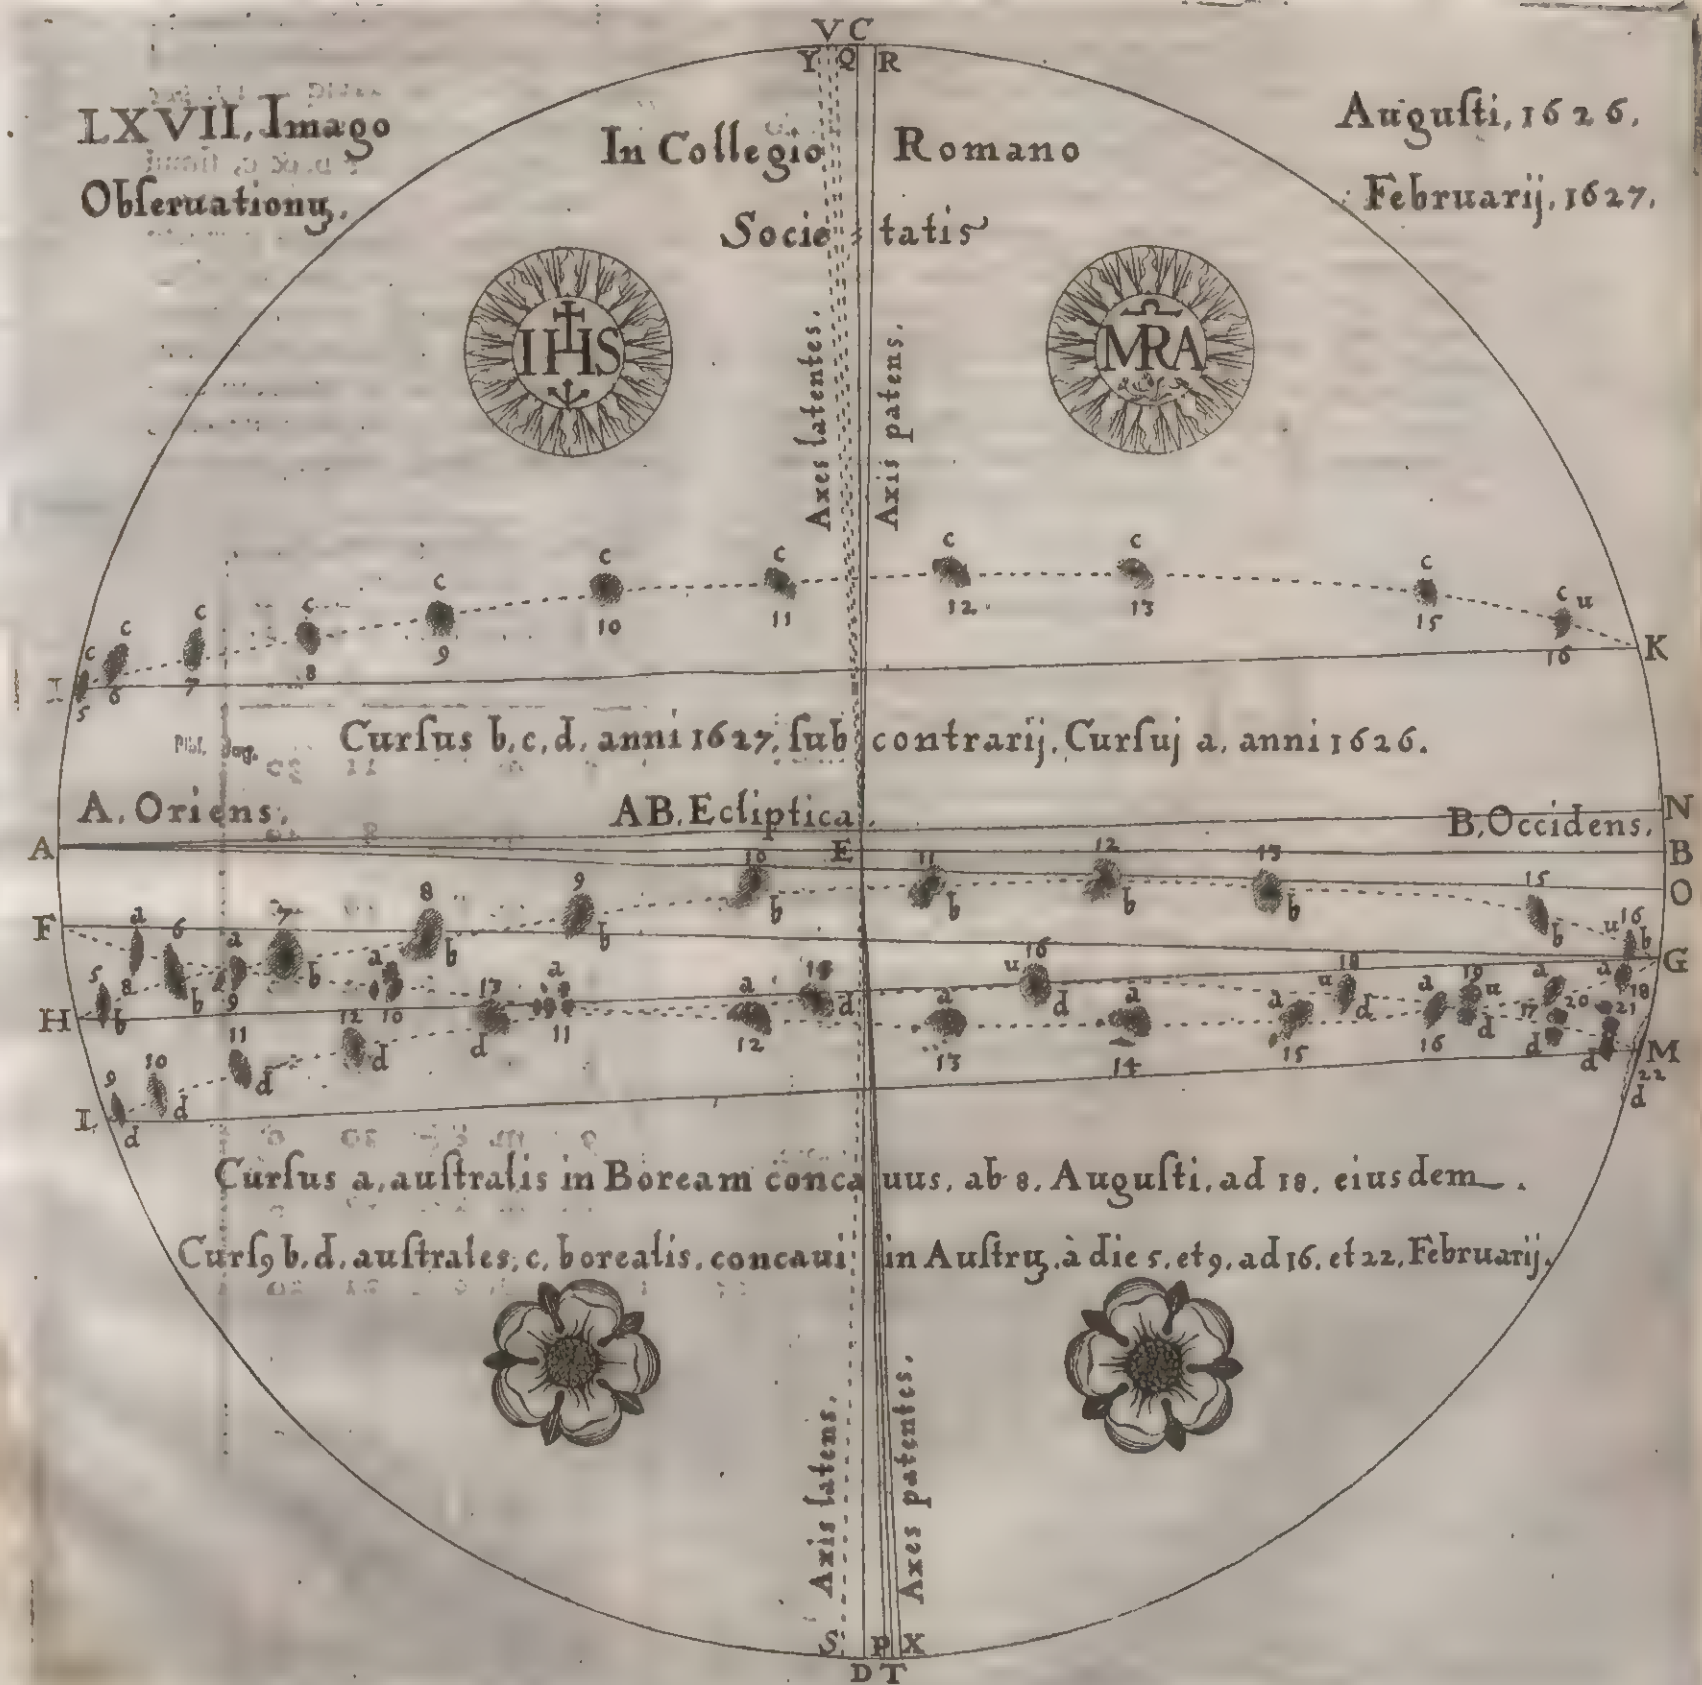 V C
Y Q R
LXVII, Imago
Obſeruationuʒ.
In Collegio Romano
Societatis
Auguſti, 1626.
Februarij, 1627.
IHS
MRA
Axes latentes.
Axis patens.
c c c c c c c c c c c u
I 5 6 7 8 9 10 11 12 13 15 16 K
Curſus b, c, d, anni 1627, ſub contrarij, Curſuj a, anni 1626.
A, Oriens, AB, Ecliptica, B, Occidens, N
A E B
10 11 12 13 O
8 9 b b b b 15 b
F a 6 7 b b u 16 b G
5 8 b a 9 b a 10 13 a 11 a 12 15 d u 16 d a 13 a 14 a 15 18 u d a 16 19 u d a 17 20 d a 18 21 d
H b 11 12 d d M
9 10 d d 22
L d d
Curſus a, auſtralis in Boream concauus, ab 8, Auguſti, ad 18, eiusdem.
Curſꝯ b, d, auſtrales, c, borealis, concaui in Auſtruʒ, à die 5, et 9, ad 16, et 22, Februarij.
Axis latens.
Axes patentes.
S P X
D T